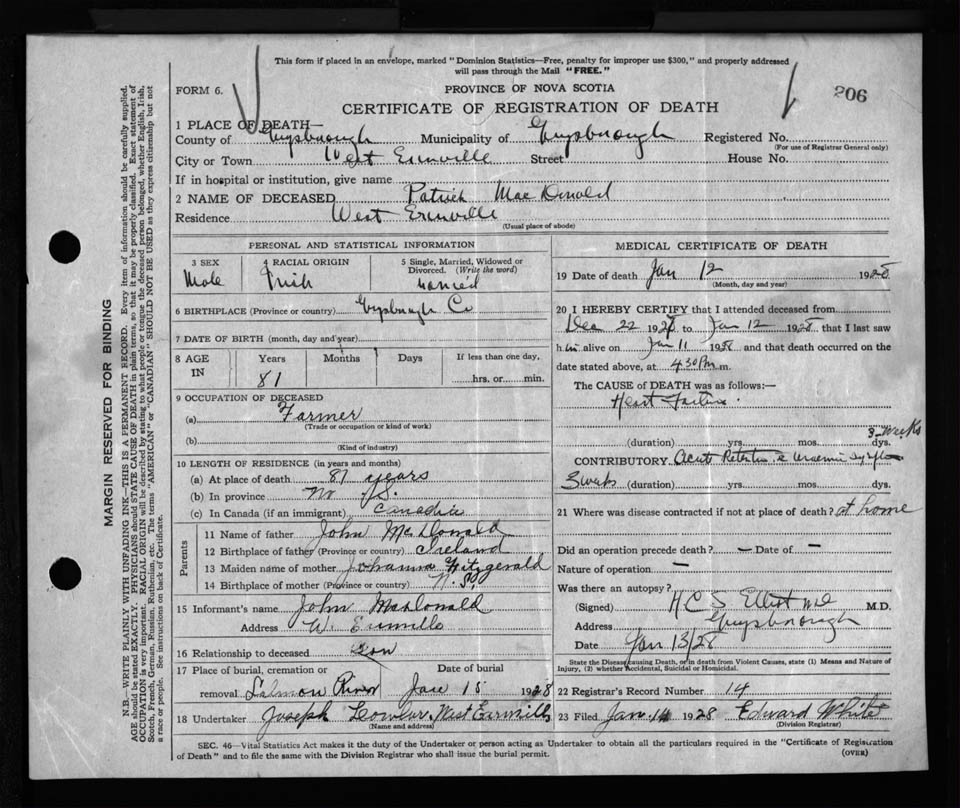 This form if placed in an envelope, marked "Dominion Statistics—Free, penalty for improper use $300," and properly addressed
will pass through the Mail "FREE."
FORM 6.
PROVINCE OF NOVA SCOTIA
206
CERTIFICATE OF REGISTRATION OF DEATH
1 PLACE OF DEATH—
County of Guysborough Municipality of Guysborough Registered No.
(For use of Registrar General only)
City or Town West Erinville Street House No.
If in hospital or institution, give name
2 NAME OF DECEASED Patrick MacDonald
Residence West Erinville
(Usual place of abode)
PERSONAL AND STATISTICAL INFORMATION
3 SEX Male
4 RACIAL ORIGIN Irish
5 Single, Married, Widowed or Divorced. (Write the word) Married
6 BIRTHPLACE (Province or country) Guysborough Co
7 DATE OF BIRTH (month, day and year)
8 AGE IN Years Months Days If less than one day,
81 hrs. or min.
9 OCCUPATION OF DECEASED
(a) Farmer
(Trade or occupation or kind of work)
(b)
(Kind of industry)
10 LENGTH OF RESIDENCE (in years and months)
(a) At place of death 81 years
(b) In province N. S.
(c) In Canada (if an immigrant) Canadian
Parents
11 Name of father John McDonald
12 Birthplace of father (Province or country) Ireland
13 Maiden name of mother Johanna Fitzgerald
14 Birthplace of mother (Province or country) N. S.
15 Informant's name John MacDonald
Address W. Erinville
16 Relationship to deceased Son
17 Place of burial, cremation or Date of burial
removal Salmon River Jan 15 1928
18 Undertaker Joseph West Erinville
(Name and address)
MEDICAL CERTIFICATE OF DEATH
19 Date of death Jan 12 1928
(Month, day and year)
20 I HEREBY CERTIFY that I attended deceased from
Dec 22 192 to Jan 12 1928 that I last saw
him alive on Jan 11 1928 and that death occurred on the
date stated above, at 4.30 P m.
The CAUSE of DEATH was as follows:—
Heart Failure.
3 weeks
(duration) yrs. mos. dys.
CONTRIBUTORY Acute
3 weeks (duration) yrs. mos. dys.
21 Where was disease contracted if not at place of death? at home
Did an operation precede death? — Date of —
Nature of operation —
Was there an autopsy?
(Signed) H C S Elliot MD M.D.
Address Guysborough
Date Jan 13/28
State the Disease causing Death, or in death from Violent Causes, state (1) Means and Nature of
Injury, (2) whether Accidental, Suicidal or Homicidal.
22 Registrar's Record Number 14
23 Filed Jan. 14 1928 Edward White
(Division Registrar)
SEC. 46—Vital Statistics Act makes it the duty of the Undertaker or person acting as Undertaker to obtain all the particulars required in the "Certificate of Registration
of Death" and to file the same with the Division Registrar who shall issue the burial permit.
(OVER)
MARGIN RESERVED FOR BINDING
N.B.—WRITE PLAINLY WITH UNFADING INK—THIS IS A PERMANENT RECORD. Every item of information should be carefully supplied.
AGE should be stated EXACTLY. PHYSICIANS should STATE CAUSE OF DEATH in plain terms, so that it may be properly classified. Exact statement of
OCCUPATION is very important. RACIAL ORIGIN will be described by stating to what people or tongue the deceased person belonged, whether English, Irish,
Scotch, French, German, Russian, Ruthenian, etc. The terms "AMERICAN" or "CANADIAN" SHOULD NOT BE USED as they express citizenship but not
a race or people. See instructions on back of Certificate.